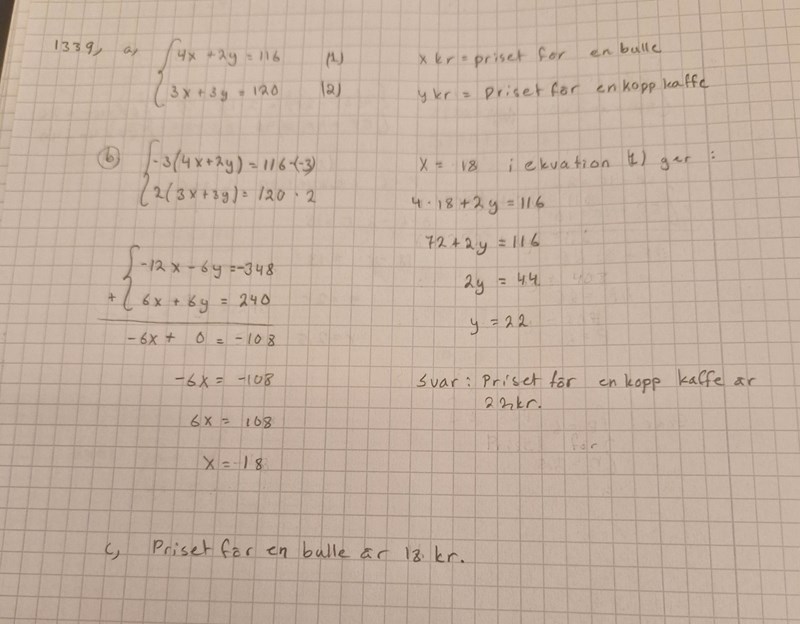 1339, a, 4x + 2y = 116 (1)
3x + 3y = 120 (2)
x kr = priset för en bulle
y kr = Priset för en kopp kaffe
b) -3(4x+2y) = 116·(-3)
2(3x+3y) = 120 · 2
-12x - 6y = -348
+ 6x + 6y = 240
-6x + 0 = -108
-6x = -108
6x = 108
x = 18
x = 18 i ekvation (1) ger :
4 · 18 + 2y = 116
72 + 2y = 116
2y = 44
y = 22
Svar : Priset för en kopp kaffe är
22 kr.
c, Priset för en bulle är 18 kr.